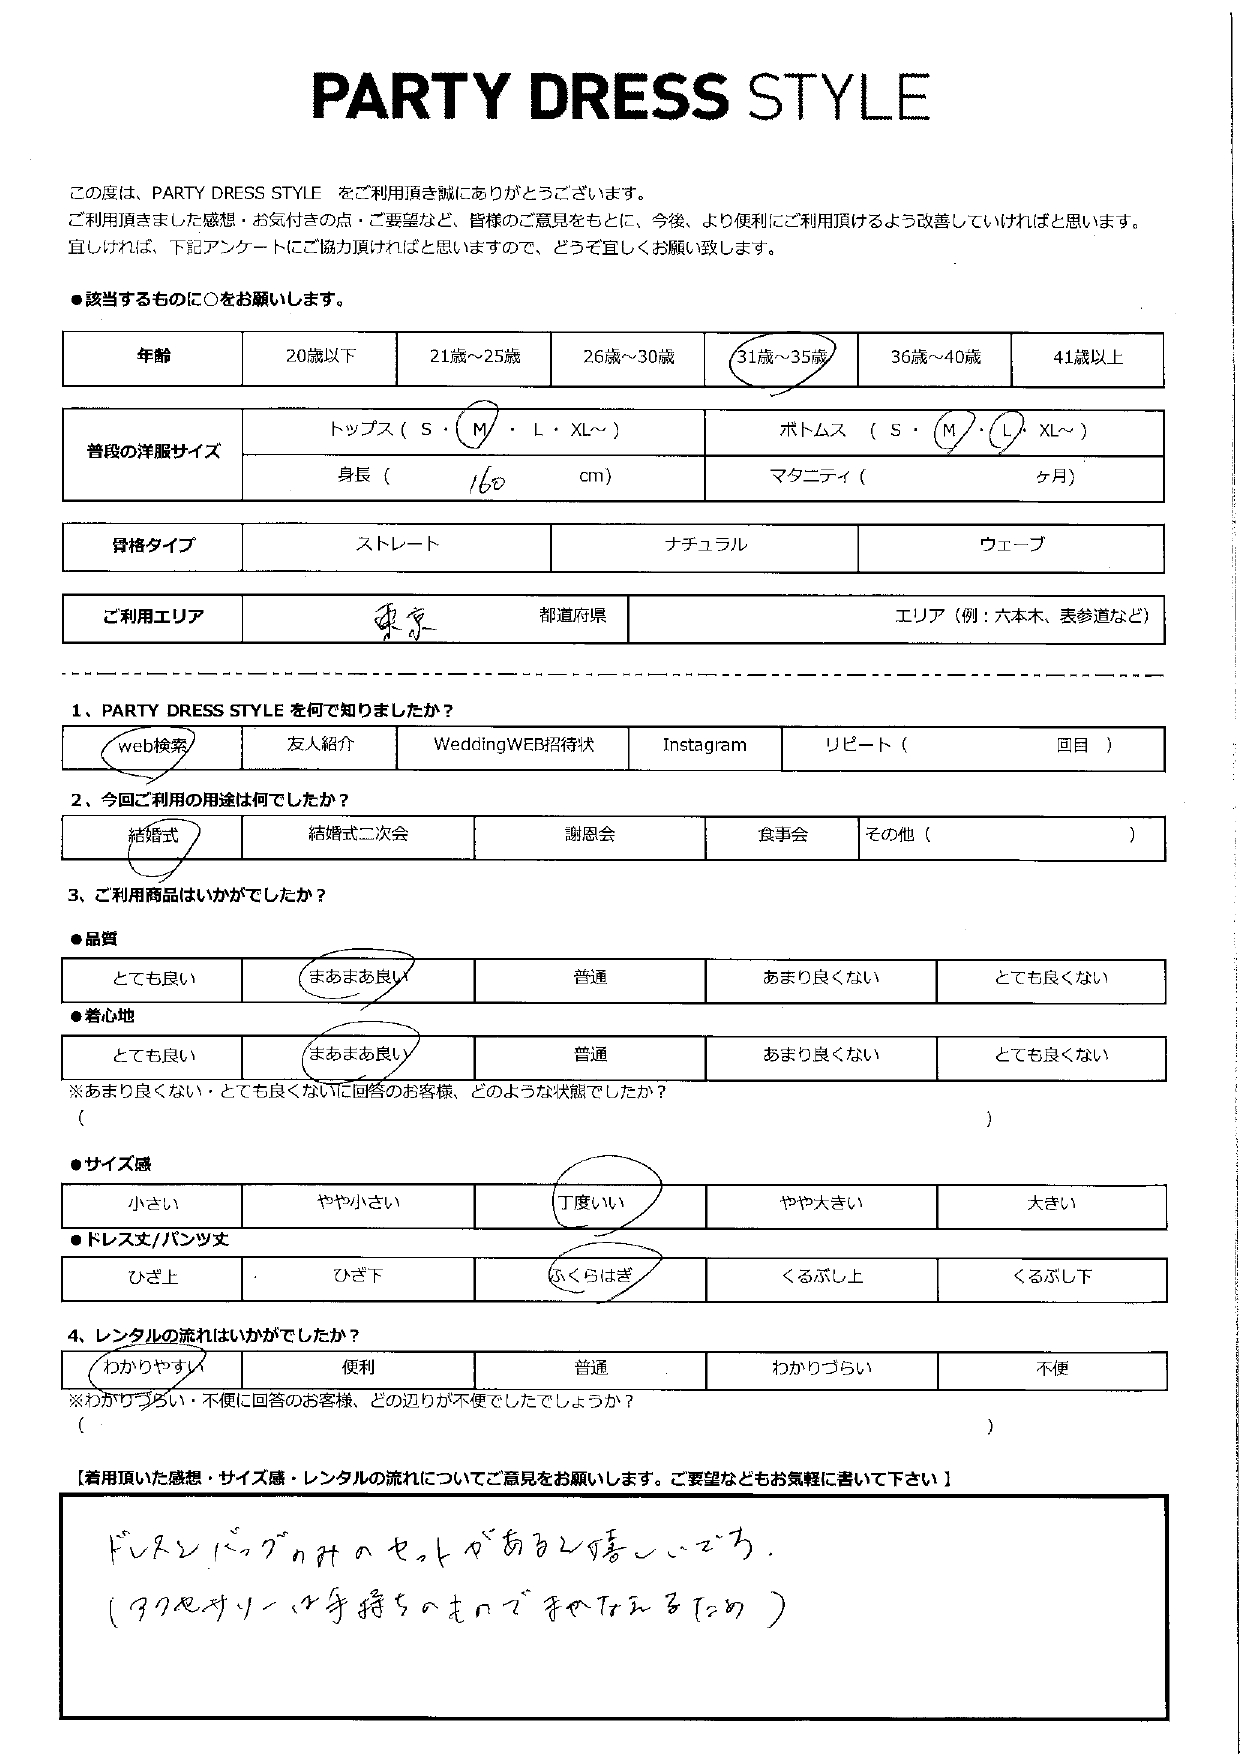 PARTY DRESS STYLE
この度は、PARTY DRESS STYLE をご利用頂き誠にありがとうございます。
ご利用頂きました感想・お気付きの点・ご要望など、皆様のご意見をもとに、今後、より便利にご利用頂けるよう改善していければと思います。
宜しければ、下記アンケートにご協力頂ければと思いますので、どうぞ宜しくお願い致します。
●該当するものに○をお願いします。
年齢 20歳以下 21歳～25歳 26歳～30歳 31歳～35歳 36歳～40歳 41歳以上
普段の洋服サイズ トップス ( S ・ M ・ L ・ XL～ ) ボトムス ( S ・ M ・ L ・ XL～ )
身長 ( 160 cm) マタニティ ( ヶ月)
骨格タイプ ストレート ナチュラル ウェーブ
ご利用エリア 東京 都道府県 エリア（例：六本木、表参道など）
1、PARTY DRESS STYLE を何で知りましたか？
web検索 友人紹介 WeddingWEB招待状 Instagram リピート ( 回目 )
2、今回ご利用の用途は何でしたか？
結婚式 結婚式二次会 謝恩会 食事会 その他 ( )
3、ご利用商品はいかがでしたか？
●品質
とても良い まあまあ良い 普通 あまり良くない とても良くない
●着心地
とても良い まあまあ良い 普通 あまり良くない とても良くない
※あまり良くない・とても良くないに回答のお客様、どのような状態でしたか？
( )
●サイズ感
小さい やや小さい 丁度いい やや大きい 大きい
●ドレス丈/パンツ丈
ひざ上 ひざ下 ふくらはぎ くるぶし上 くるぶし下
4、レンタルの流れはいかがでしたか？
わかりやすい 便利 普通 わかりづらい 不便
※わかりづらい・不便に回答のお客様、どの辺りが不便でしたでしょうか？
( )
【着用頂いた感想・サイズ感・レンタルの流れについてご意見をお願いします。ご要望などもお気軽に書いて下さい 】
ドレスとバッグのみのセットがあると嬉しいです.
(アクセサリーは手持ちのものでまかなえるため)